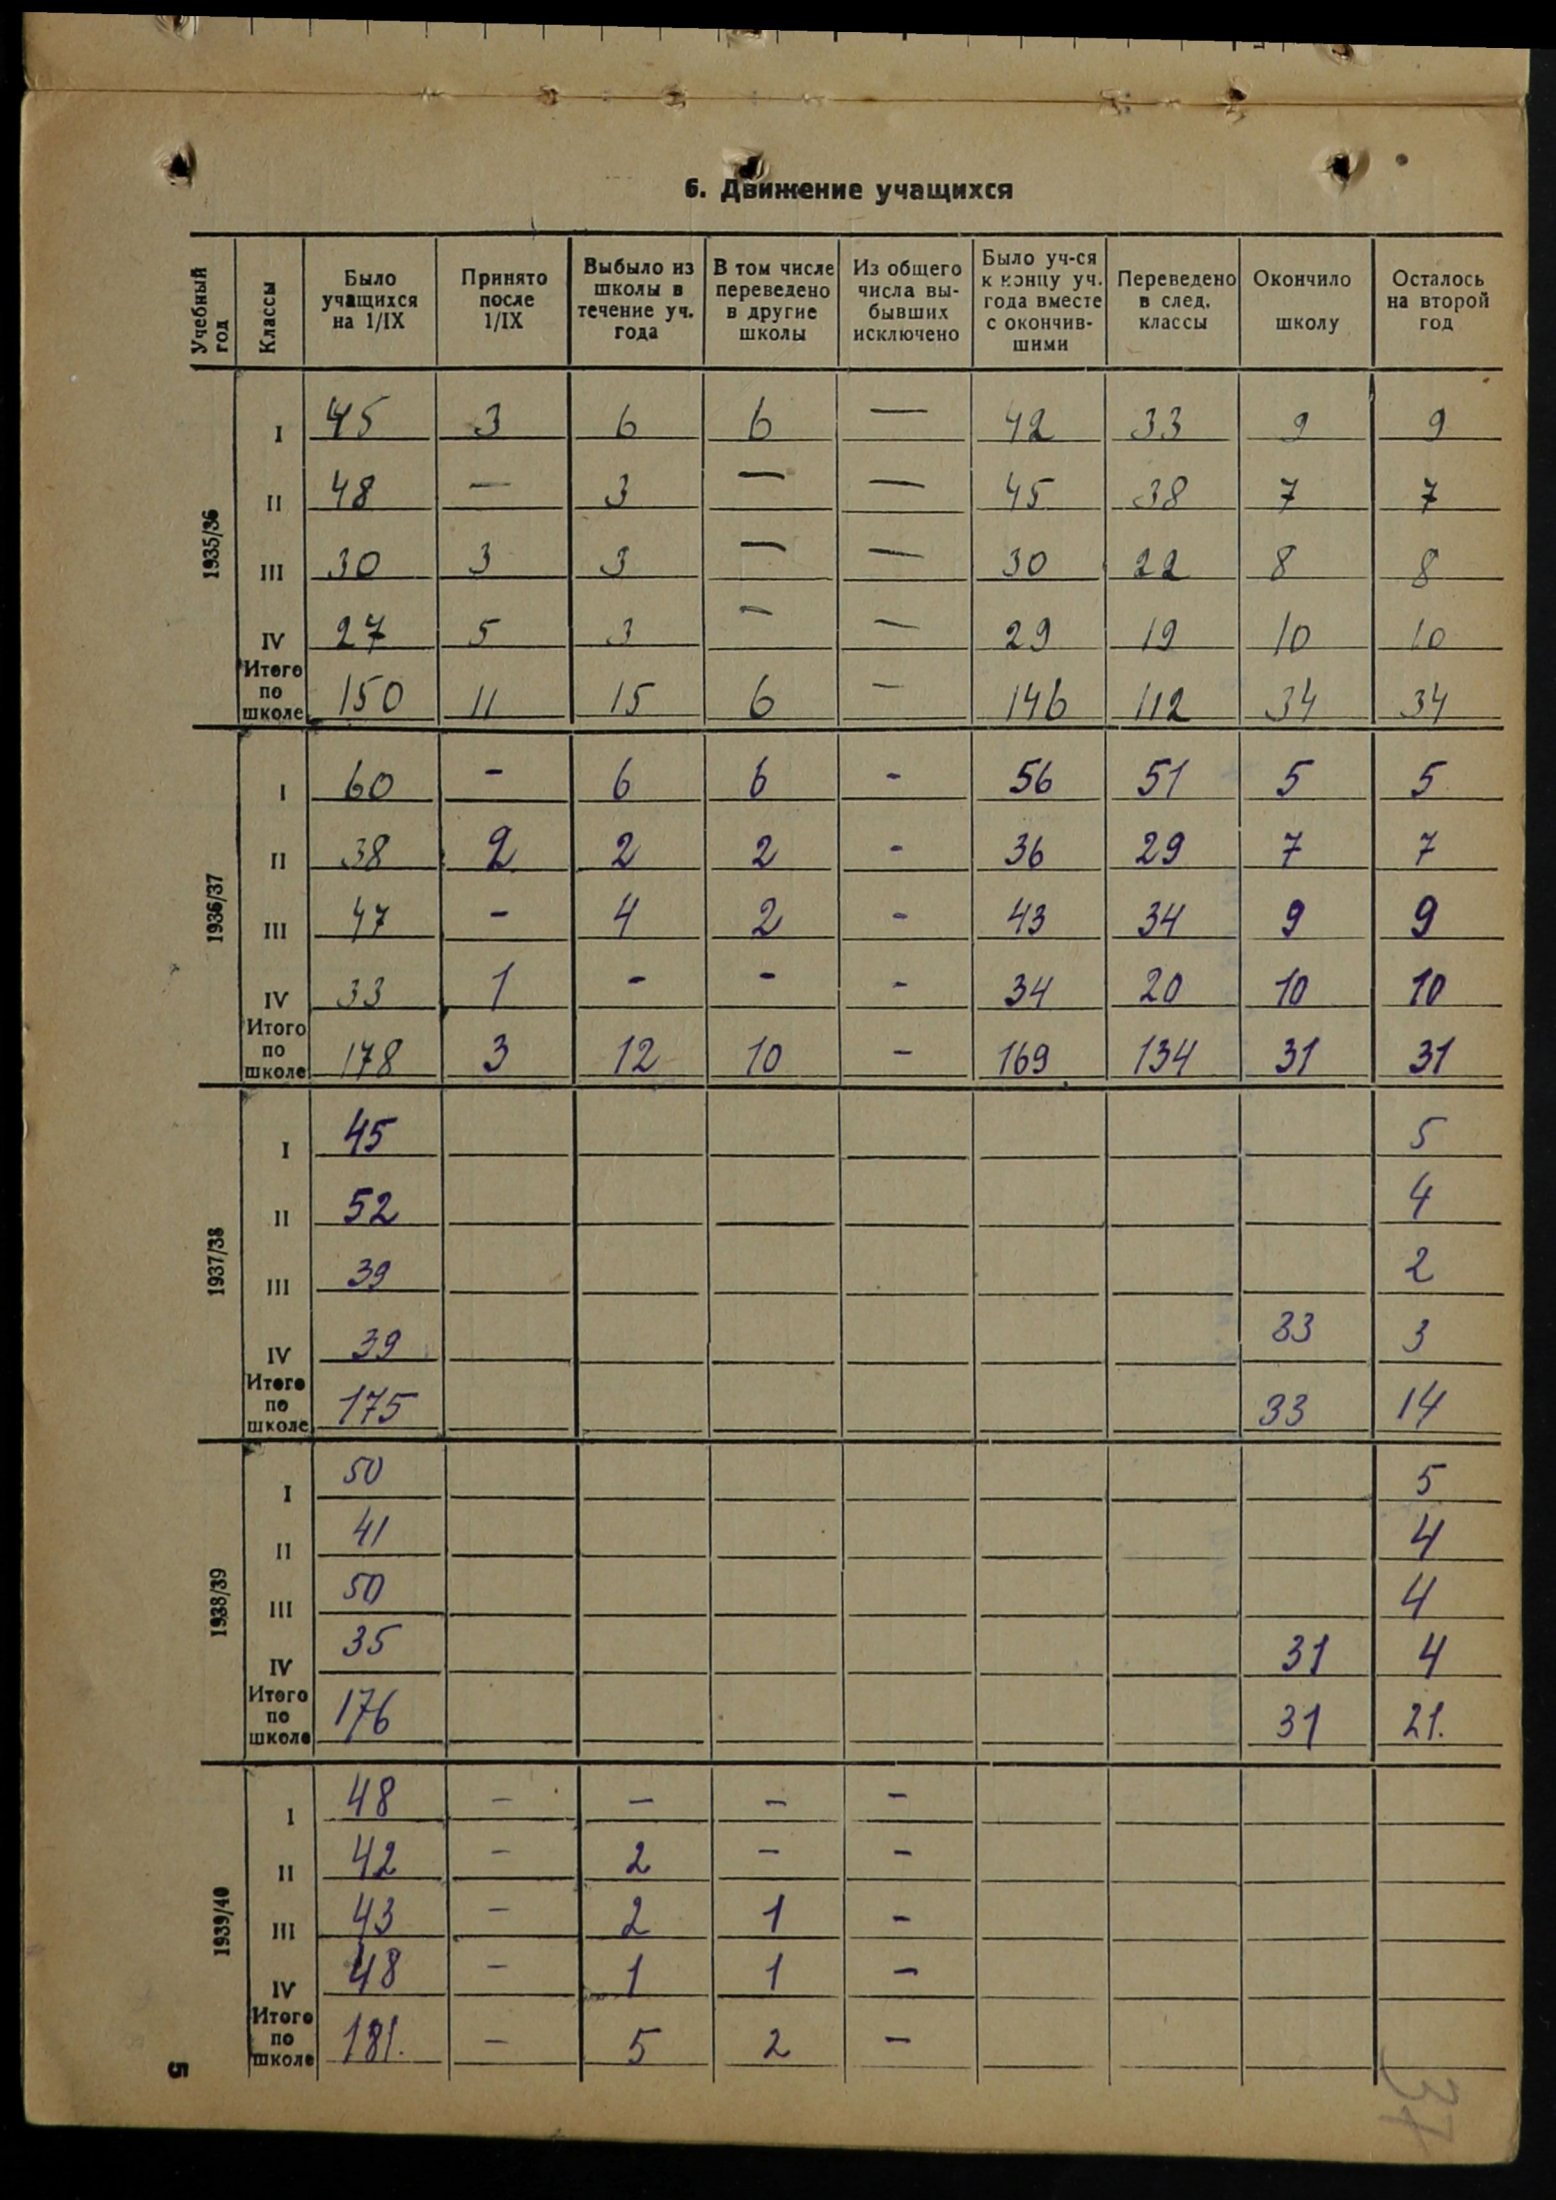 6. Движение учащихся
Учебный год | Классы | Было учащихся на 1/IX | Принято после 1/IX | Выбыло из школы в течение уч. года | В том числе переведено в другие школы | Из общего числа выбывших исключено | Было уч-ся к концу уч. года вместе с окончившими | Переведено в след. классы | Окончило школу | Осталось на второй год
1935/36
I | 45 | 3 | 6 | 6 | — | 42 | 33 | 9 | 9
II | 48 | — | 3 | — | — | 45 | 38 | 7 | 7
III | 30 | 3 | 3 | — | — | 30 | 22 | 8 | 8
IV | 27 | 5 | 3 | — | — | 29 | 19 | 10 | 10
Итого по школе | 150 | 11 | 15 | 6 | — | 146 | 112 | 34 | 34
1936/37
I | 60 | - | 6 | 6 | - | 56 | 51 | 5 | 5
II | 38 | 2 | 2 | 2 | - | 36 | 29 | 7 | 7
III | 47 | - | 4 | 2 | - | 43 | 34 | 9 | 9
IV | 33 | 1 | - | - | - | 34 | 20 | 10 | 10
Итого по школе | 178 | 3 | 12 | 10 | - | 169 | 134 | 31 | 31
1937/38
I | 45 | 5
II | 52 | 4
III | 39 | 2
IV | 39 | 33 | 3
Итого по школе | 175 | 33 | 14
1938/39
I | 50 | 5
II | 41 | 4
III | 50 | 4
IV | 35 | 31 | 4
Итого по школе | 176 | 31 | 21.
1939/40
I | 48 | - | - | - | -
II | 42 | - | 2 | - | -
III | 43 | - | 2 | 1 | -
IV | 48 | - | 1 | 1 | -
Итого по школе | 181. | - | 5 | 2 | -
5
37